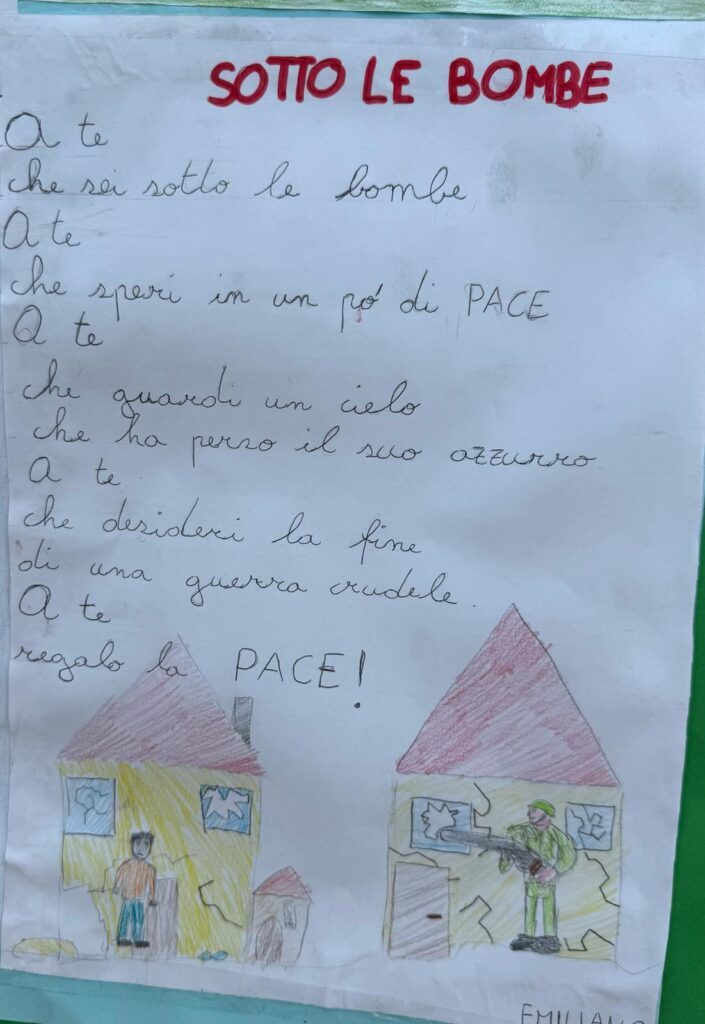 SOTTO LE BOMBE
A te
che sei sotto le bombe
A te
che speri in un pó di PACE
A te
che guardi un cielo
che ha perso il suo azzurro
A te
che desideri la fine
di una guerra crudele.
A te
regalo la PACE!
EMILIANO